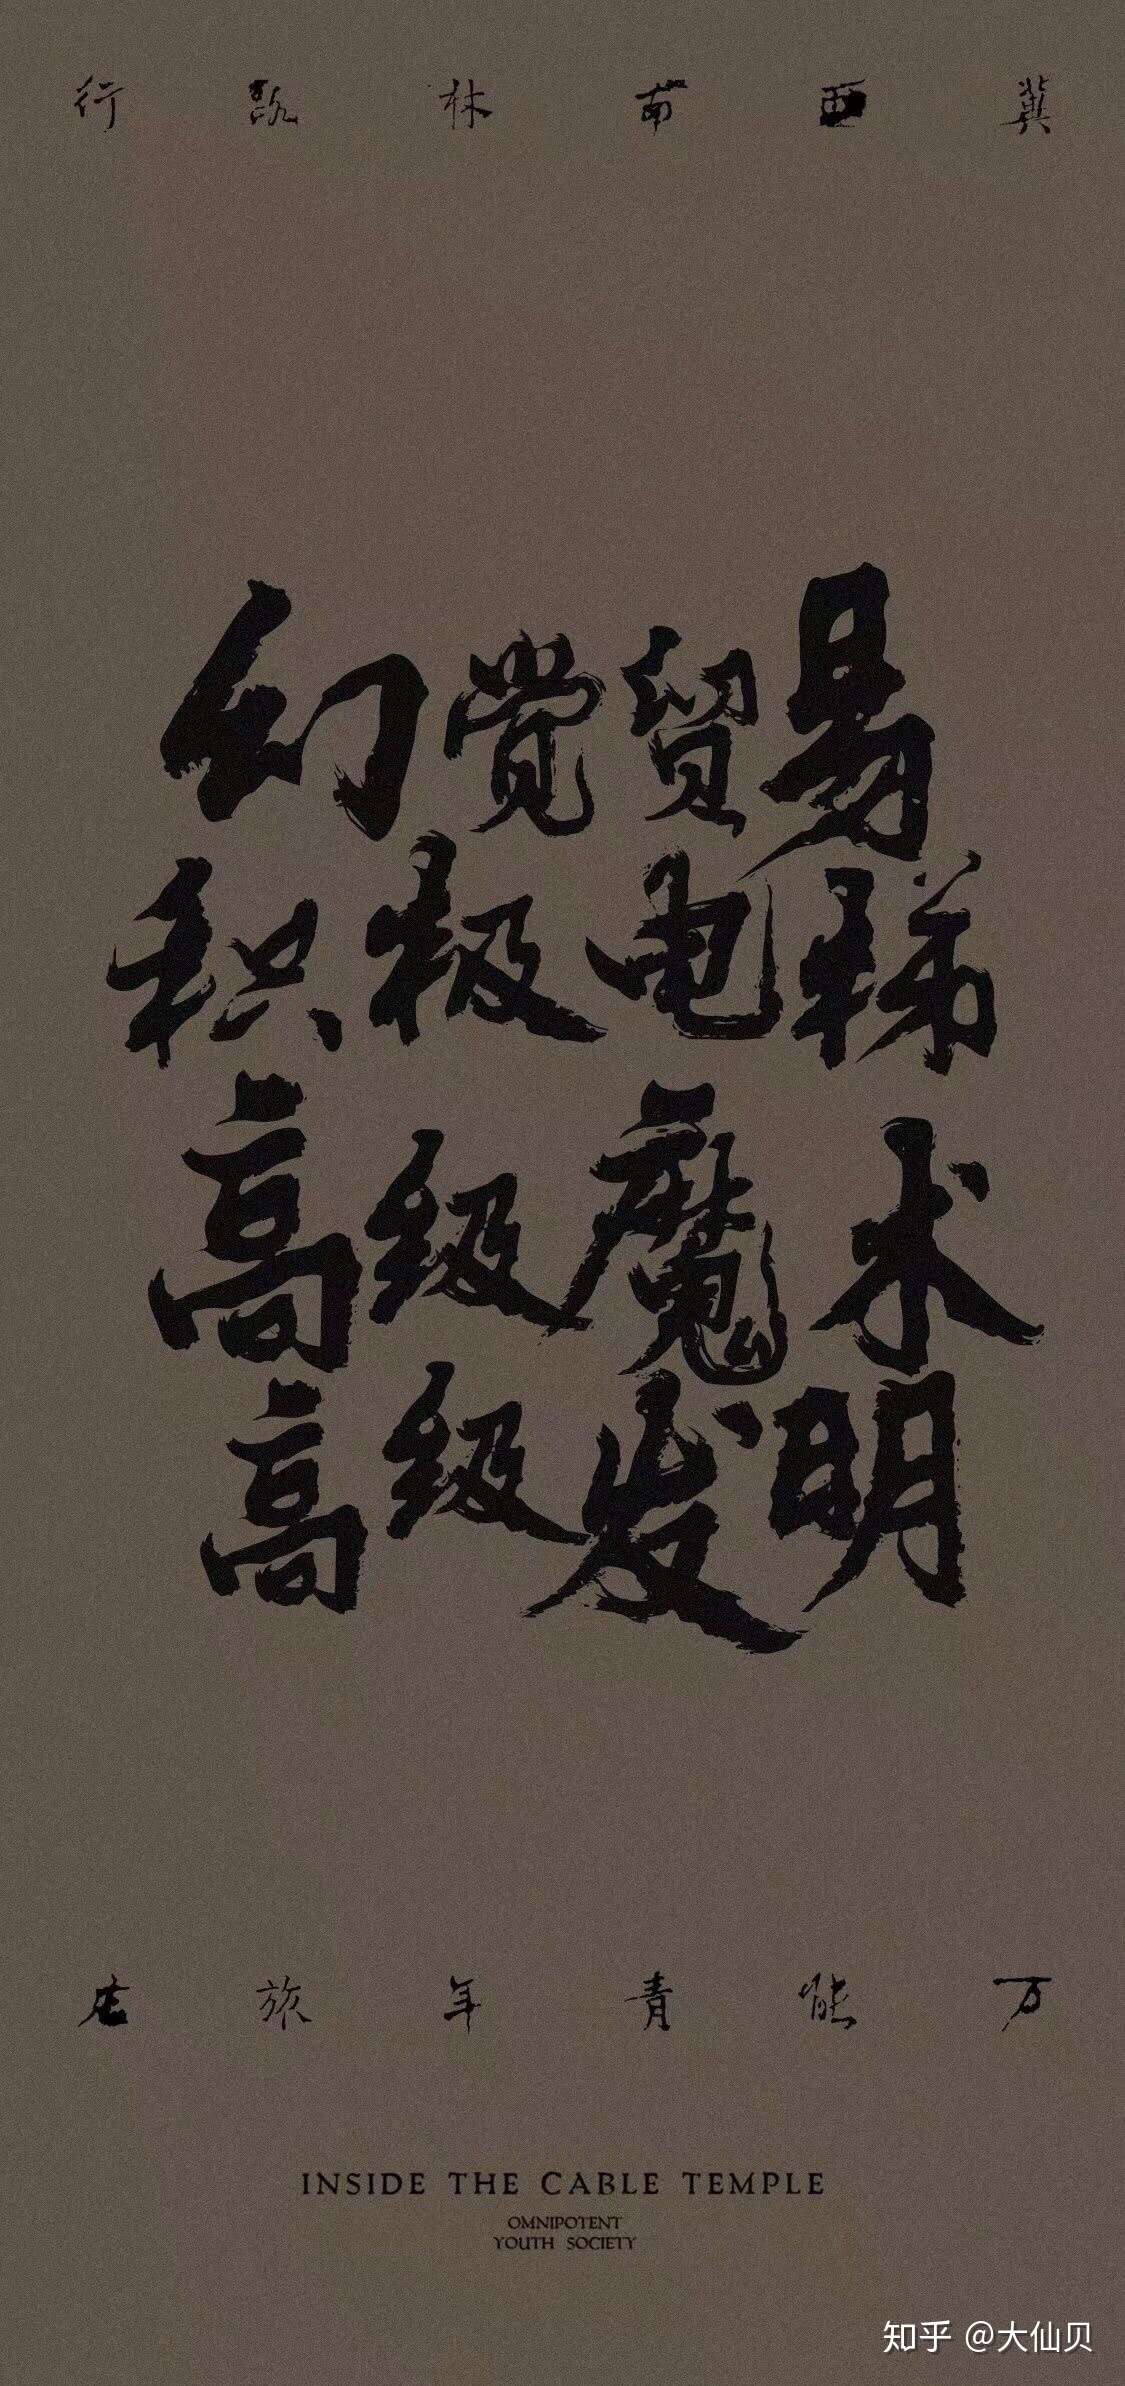 冀西南林路行
幻觉贸易
积极电梯
高级魔术
高级发明
万能青年旅店
INSIDE THE CABLE TEMPLE
OMNIPOTENT
YOUTH SOCIETY
知乎 @大仙贝